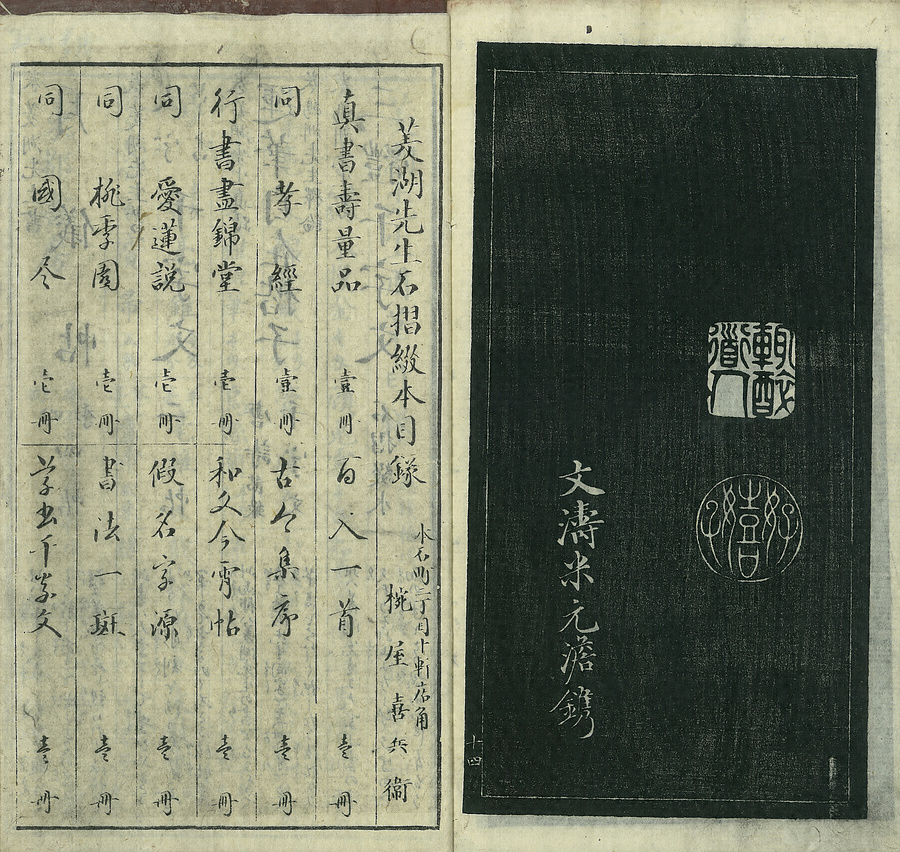 文濤米元澹鐫
十四
菱湖先生石摺綴本目録
本石町二丁目十軒店角
椀屋喜兵衞
真書壽量品 壹冊 百人一首 壱冊
同 孝經 壹冊 古今集序 壱冊
行書晝錦堂 壱冊 和文今宵帖 壱冊
同 愛蓮説 壱冊 假名字源 壱冊
同 桃李園 壱冊 書法一斑 壱冊
同 國尽 壱冊 草書千字文 壱冊